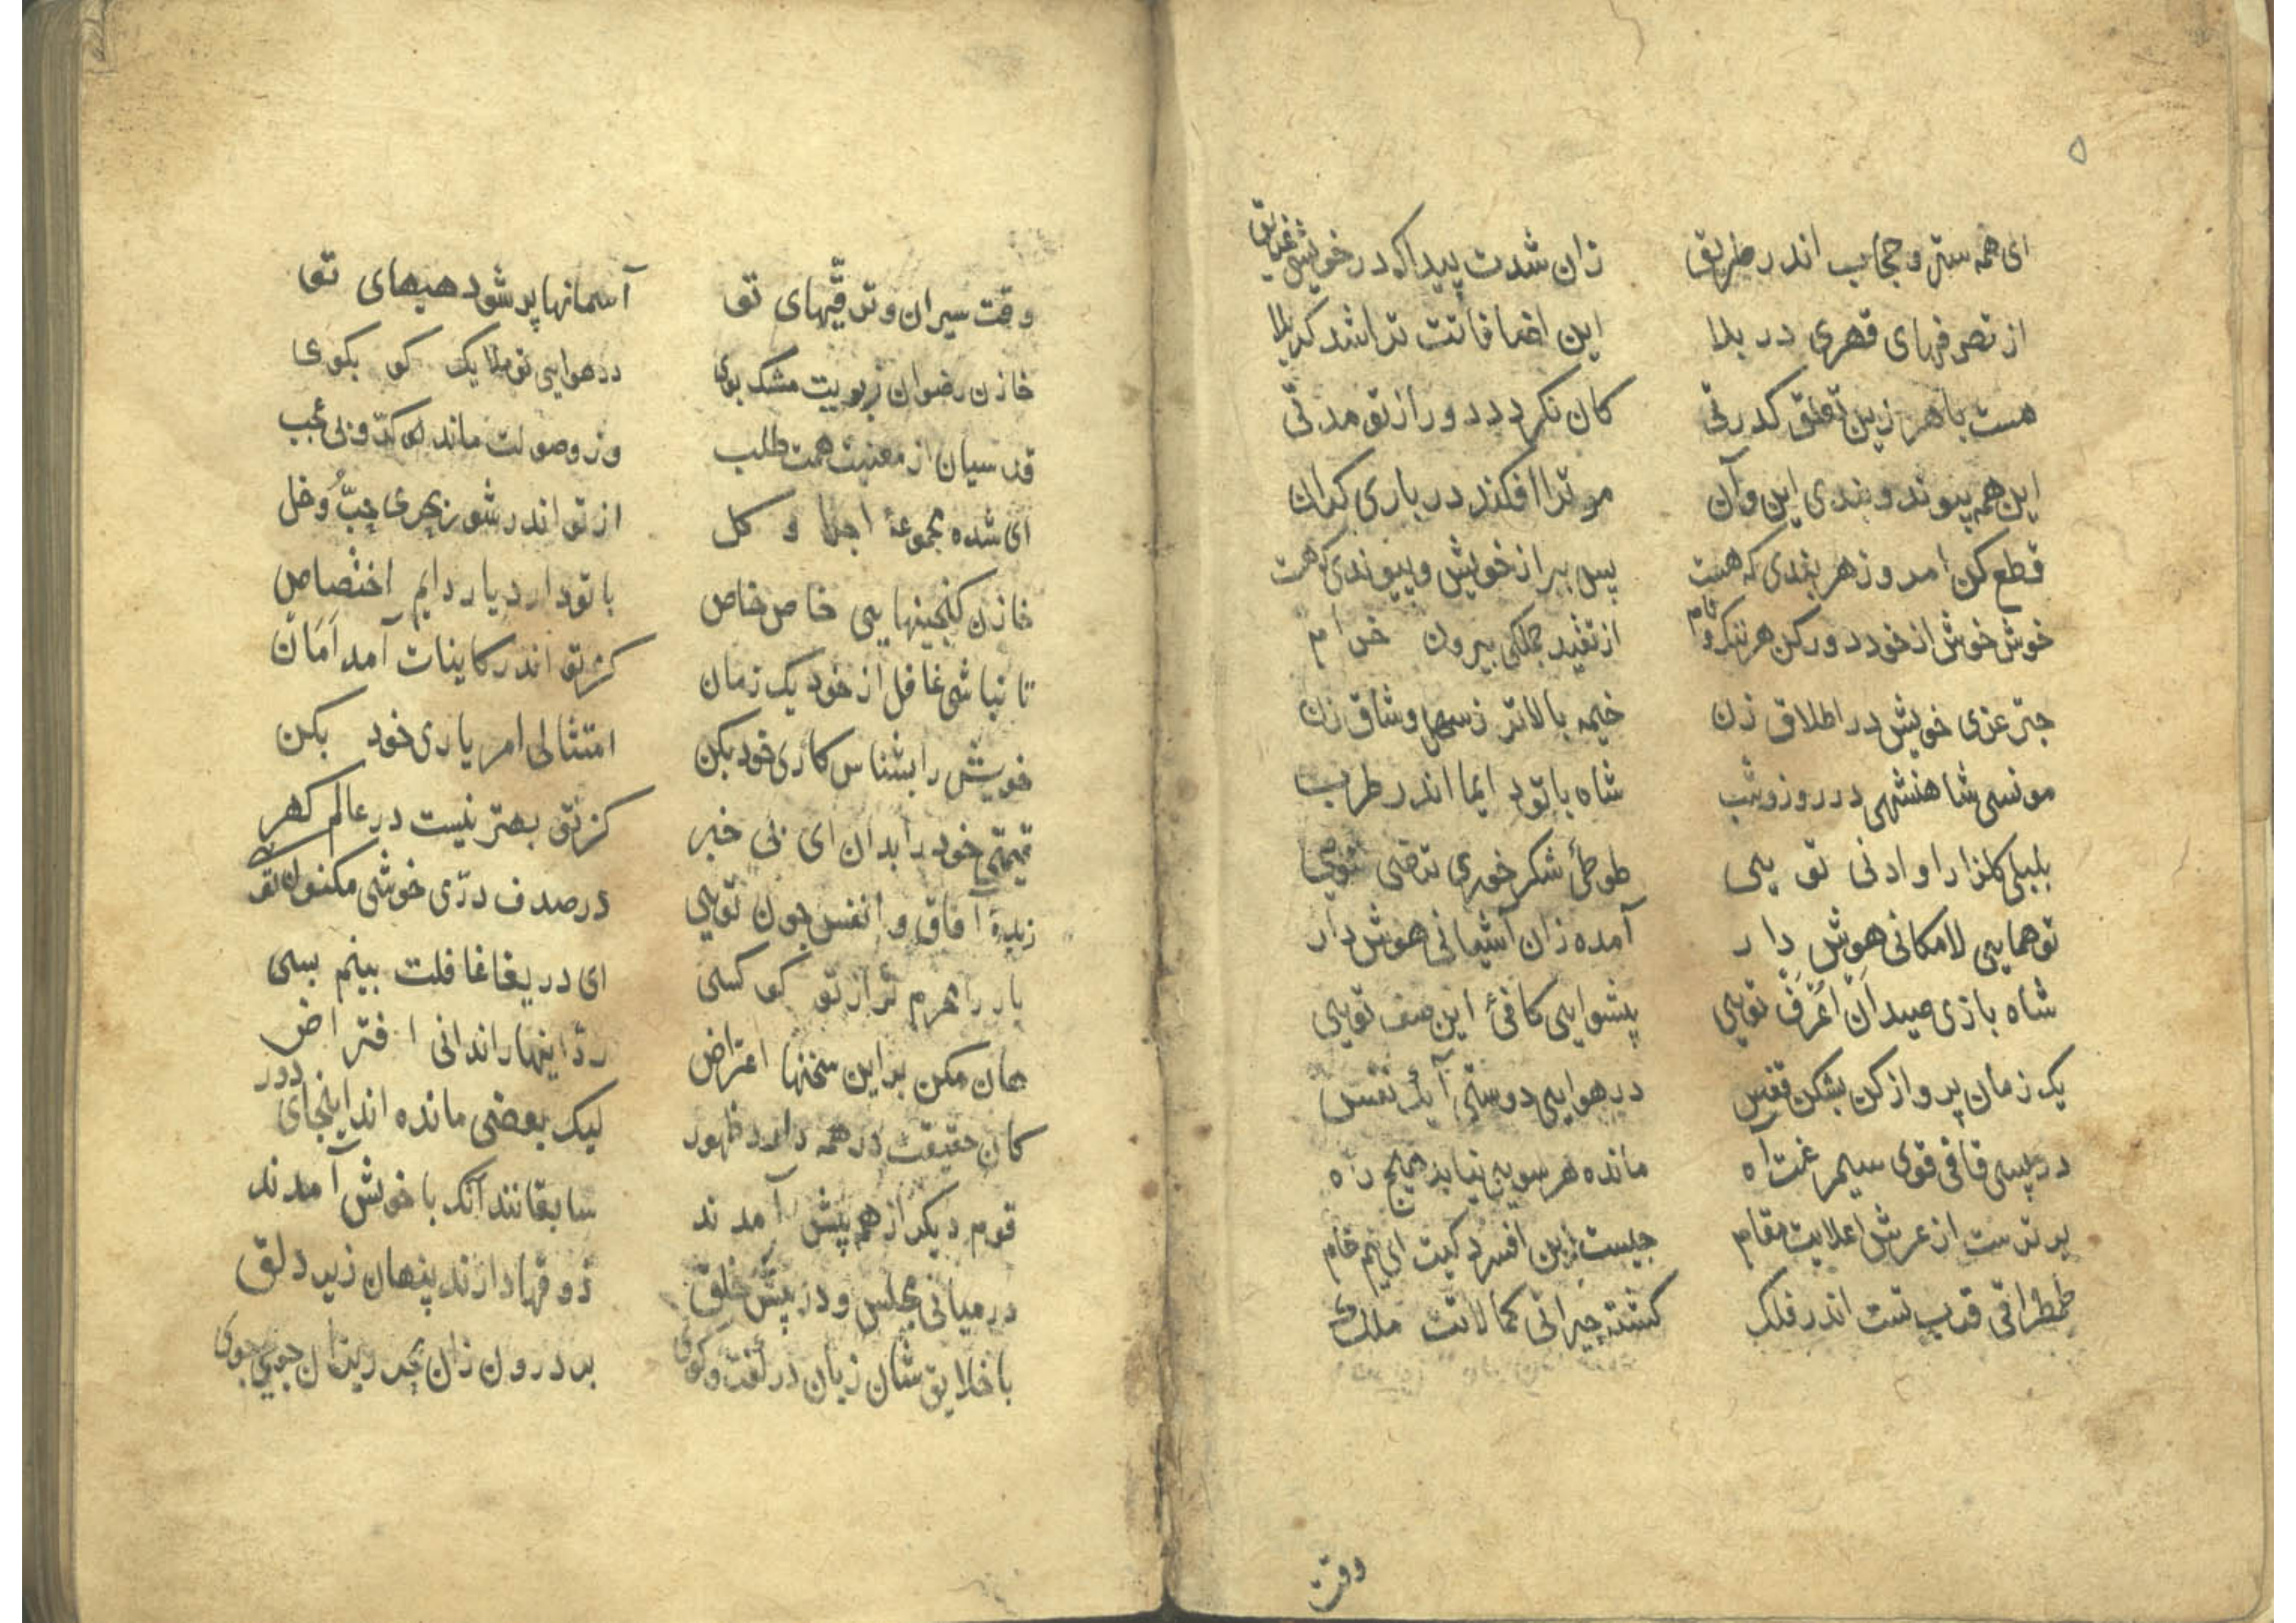 ۵
ای همه ستر و حجاب اندر طریق زان شدت پیدا که در خویشی غریق
از تصرفهای قهری در بلا این اضافاتت ترا شد کربلا
هست با هر زین تعلق کدرتی کان نکردد دور از تو مدتی
این همه پیوند و بندی این و آن مر ترا افکند در باری کران
قطع کن امروز هر بندی که هست پس ببر از خویش و پیوندی که هست
خوش خوش از خود دور کن هر ننک و نام از تقید جملکی بیرون خرام
چتر عزی خویش در اطلاق زن خیمه بالاتر زسهل وشاق زن
مونسی شاهنشهی در روز و شب شاه با تو دایما اندر طرب
بلبلی کلزار او ادنی تو یی طوطئ شکر خوری ترضی تویی
تو همایی لامکانی هوش دار آمده زان آشیانی هوش دار
شاه بازی صیدان اعرف تویی پیشوایی کافئ این صف تویی
یک زمان پرواز کن بشکن قفس در هوایی دوستی آیک نفس
در پسی قافی قوی سیمرغت آه مانده هر سویی نیابد هیچ راه
برترست از عرش اعلایت مقام چیست این افسردکیت ای نیم خام
طمطراقی قرب تست اندر فلک کشته حیرانی کمالاتت ملک
وقت
وقت سیران و ترقیهای تو آسمانها پر شود هیهای تو
خازن رضوان زبویت مشک بوی در هوایی تو ملایک کو بکوی
قدسیان از معنیت همت طلب وز وصولت مانده کروبی عجب
ای شده مجموعهٔ اجزا و کل از تو اندر شور زبحری حب و خل
خازن کنجینهایی خاص خاص با تو دارد یار دایم اختصاص
تا نباشی غافل از خود یک زمان کز تو اندر کاینات آمد امان
خویش را بشناس کاری خود بکن امتثالی امر یاری خود بکن
قیمتی خود را بدان ای بی خبر کز تو بهتر نیست در عالم کهر
زبدهٔ آفاق و انفس چون تویی در صدف دری خوشی مکنون تویی
یار را محرم تر از تو کو کسی ای دریغا غافلت بینم بسی
هان مکن بر این سخنها اعتراض رد اینها را ندانی افتراض
کان حقیقت در همه دارد ظهور لیک بعضی مانده اند اینجای دور
قوم دیکر از همه پیش آمدند سابقانند آنک با خویش آمدند
در میانی مجلس و در پیش خلق ذوقها دارند پنهان زیر دلق
با خلایق شان زبان در کفت و کوی بر درون زان بحر ریزان جوی جوی